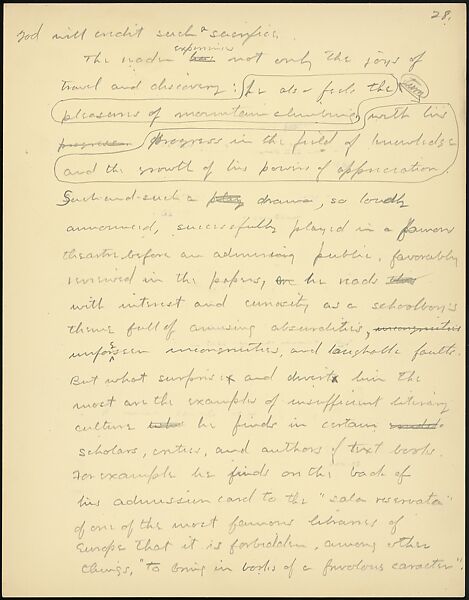 28.
God will credit such a sacrifice.
The reader has experiences not only the joys of
travel and discovery: he also feels the
pleasures of mountain climbing with his
progression progress in the field of knowledge
and the growth of his powers of appreciation.
Such-and-such a play drama, so loudly
announced, successfully played in a famous
theatre before an admiring public, favorably
reviewed in the papers, he reads
with interest and curiosity as a schoolboy's
theme full of amusing absurdities, incongruities
unforseen incongruities, and laughable faults.
But what surprises and diverts him the
most are the examples of insufficient literary
culture he finds in certain
scholars, critics, and authors of text books.
For example he finds on the back of
his admission card to the "sala reservata"
of one of the most famous libraries of
Europe that it is forbidden, among other
things, "to bring in books of a frivolous caracter".